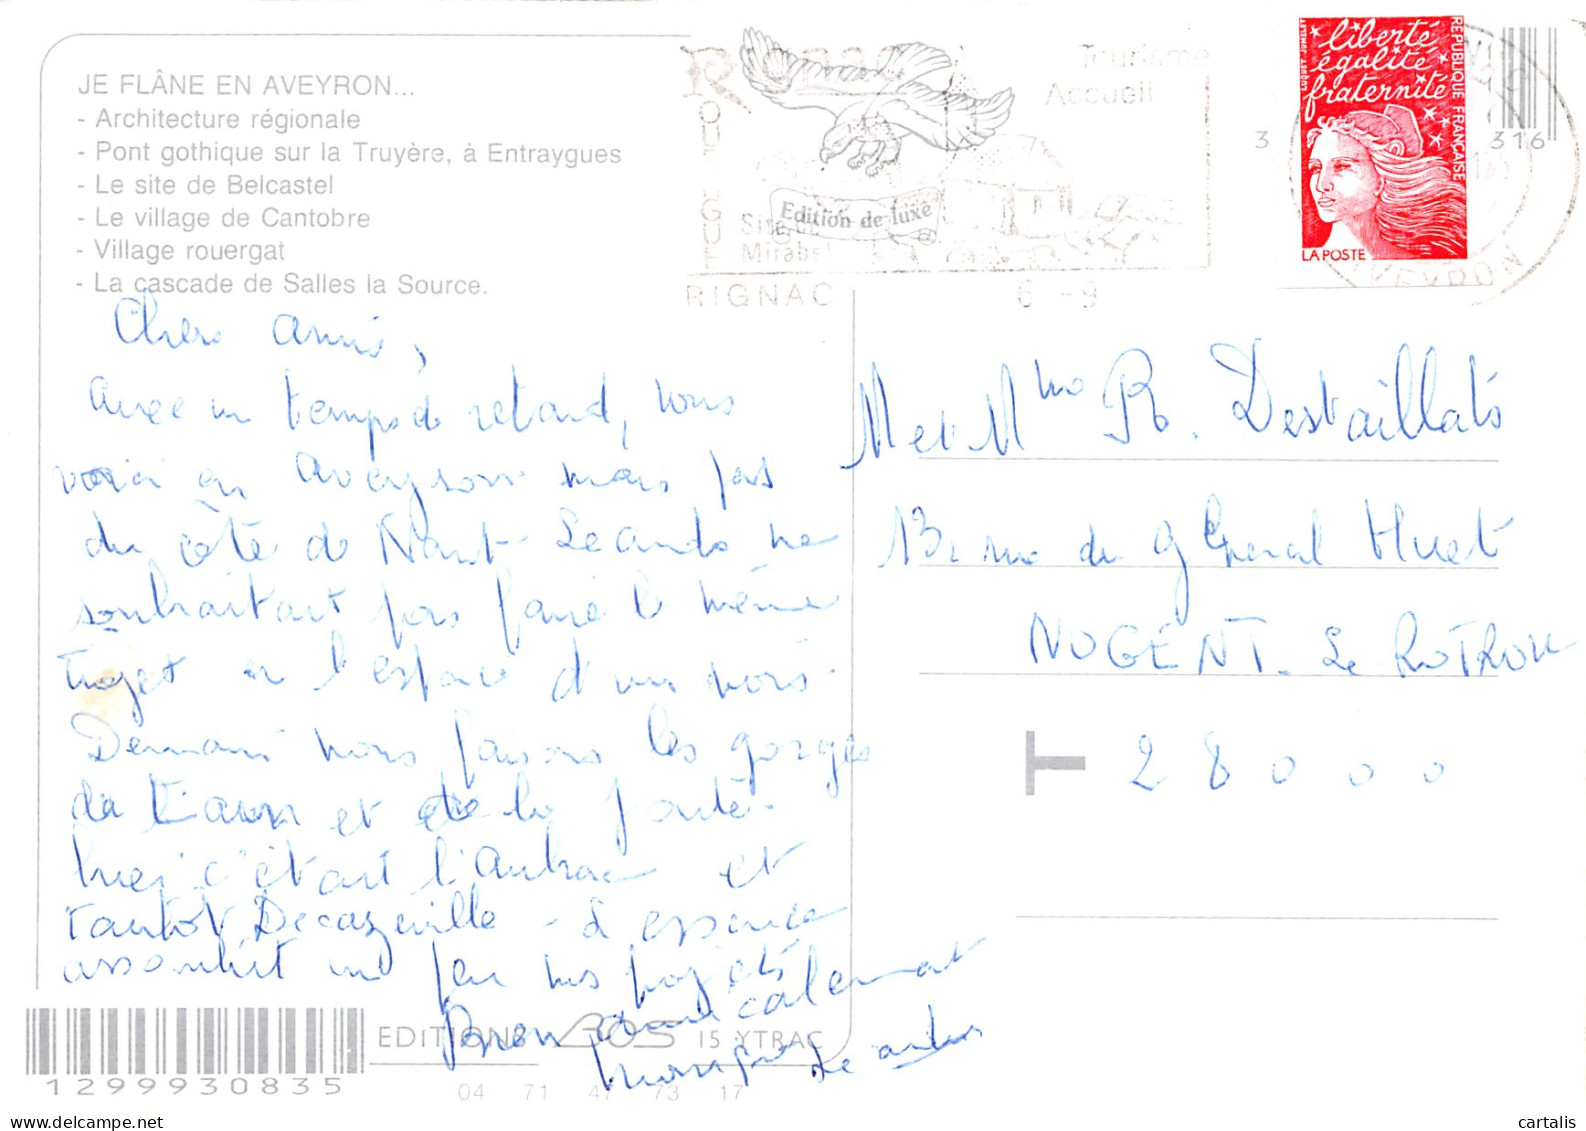 JE FLÂNE EN AVEYRON...
- Architecture régionale
- Pont gothique sur la Truyère, à Entraygues
- Le site de Belcastel
- Le village de Cantobre
- Village rouergat
- La cascade de Salles la Source.
Tourisme
Accueil
Edition de luxe
Site
Mirabel
RIGNAC
6 -9
liberté
égalité
fraternité
RÉPUBLIQUE FRANÇAISE
LA POSTE
3
316
AVEYRON
Chers amis,
avec un temps de retard, nous
voici en Aveyron mais pas
du côté de Nant - Leando ne
souhaitait pas faire le même
trajet en l'espace d'un mois.
Demain nous faisons les gorges
du Tarn et de la Jonte.
hier c'était l'Aubrac et
tantôt Decazeville - L'essence
assouvit un peu nos projets
Bien amicalement
M et Mme R. Destaillats
13 rue du Général Huet
NOGENT. Le ROTROU
T 28000
EDITIONS BOS 15 YTRAC
1299930835
04 71 47 73 17
cartalis
www.delcampe.net